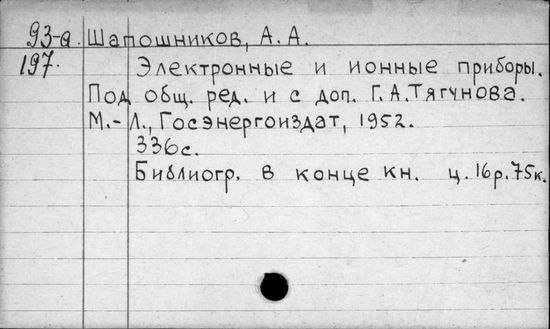 93-а. Шапошников, А. А.
197. Электронные и ионные приборы.
Под общ. ред. и с доп. Г. А. Тягунова.
М.-Л., Госэнергоиздат, 1952.
336с.
Библиогр. в конце кн. ц. 16р. 75к.